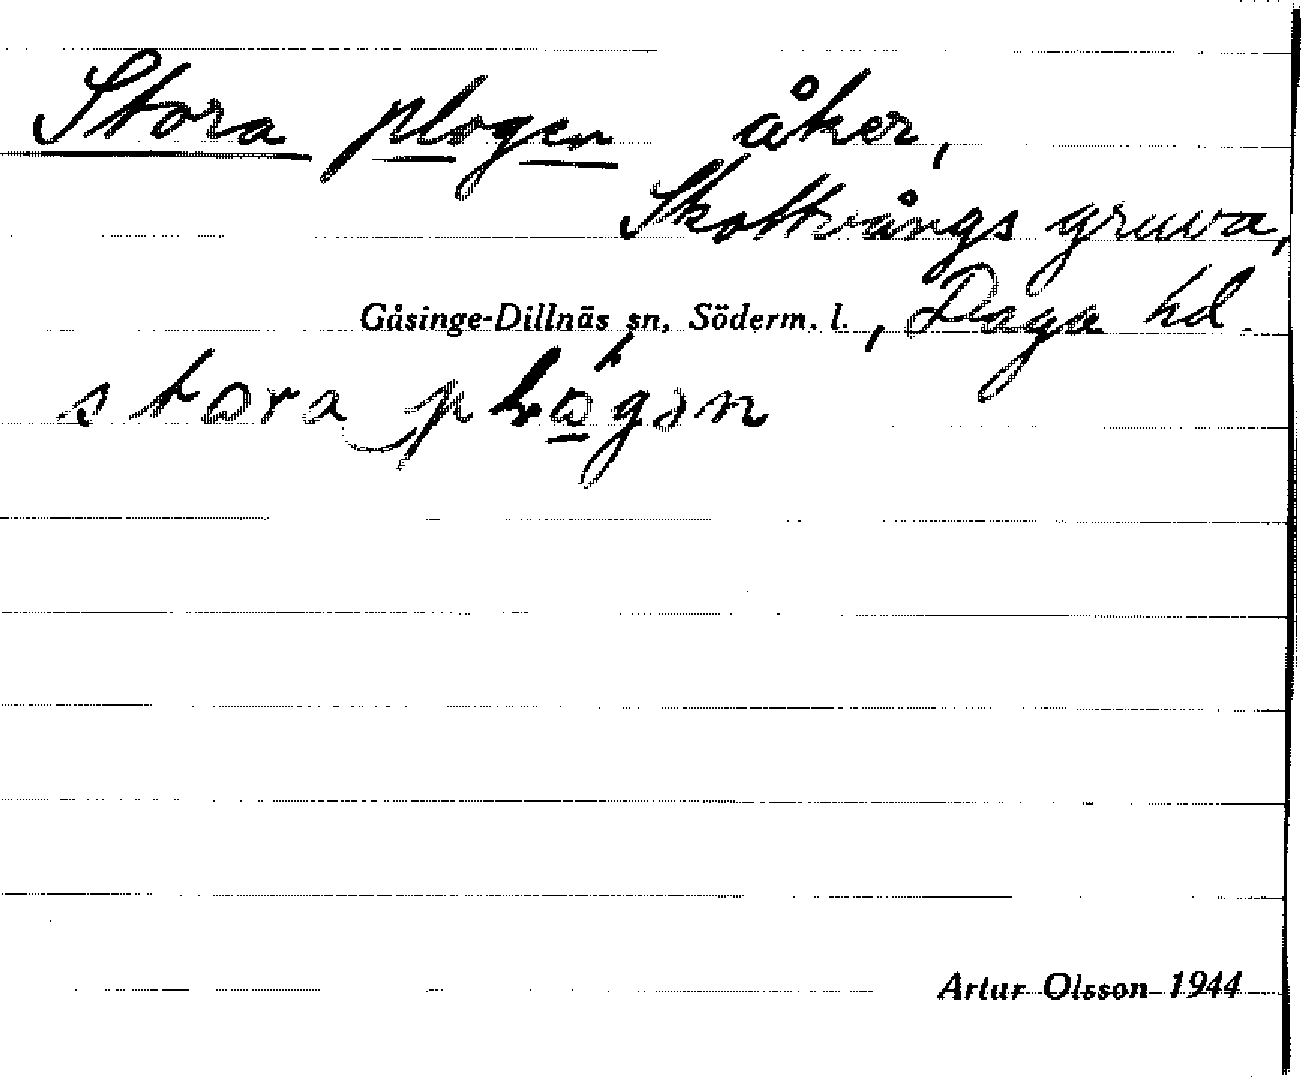 Stora plogen åker,
Skottvångs gruva,
Gåsinge-Dillnäs sn, Söderm. l., Daga hd.
stora plogən
Artur Olsson 1944